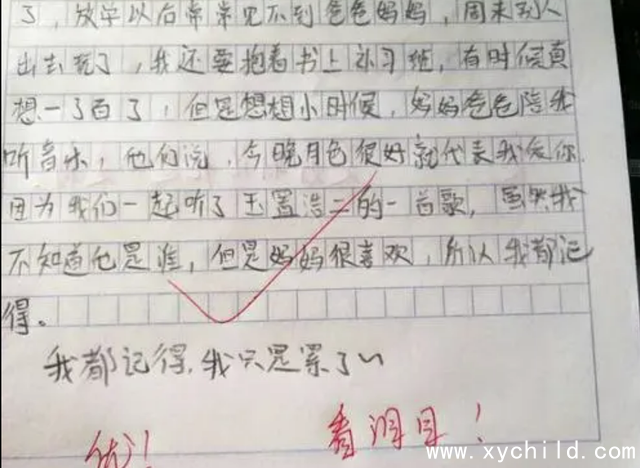 了，放学以后常常见不到爸爸妈妈，周末别人
出去玩了，我还要抱着书上补习班，有时候真
想一了百了，但是想想小时候，妈妈爸爸陪我
听音乐，他们说，今晚月色很好就代表我爱你
因为我们一起听了玉置浩二的一首歌，虽然我
不知道他是谁，但是妈妈很喜欢，所以我都记
得。
我都记得，我只是累了~
优！
看眉目！
www.xychild.com